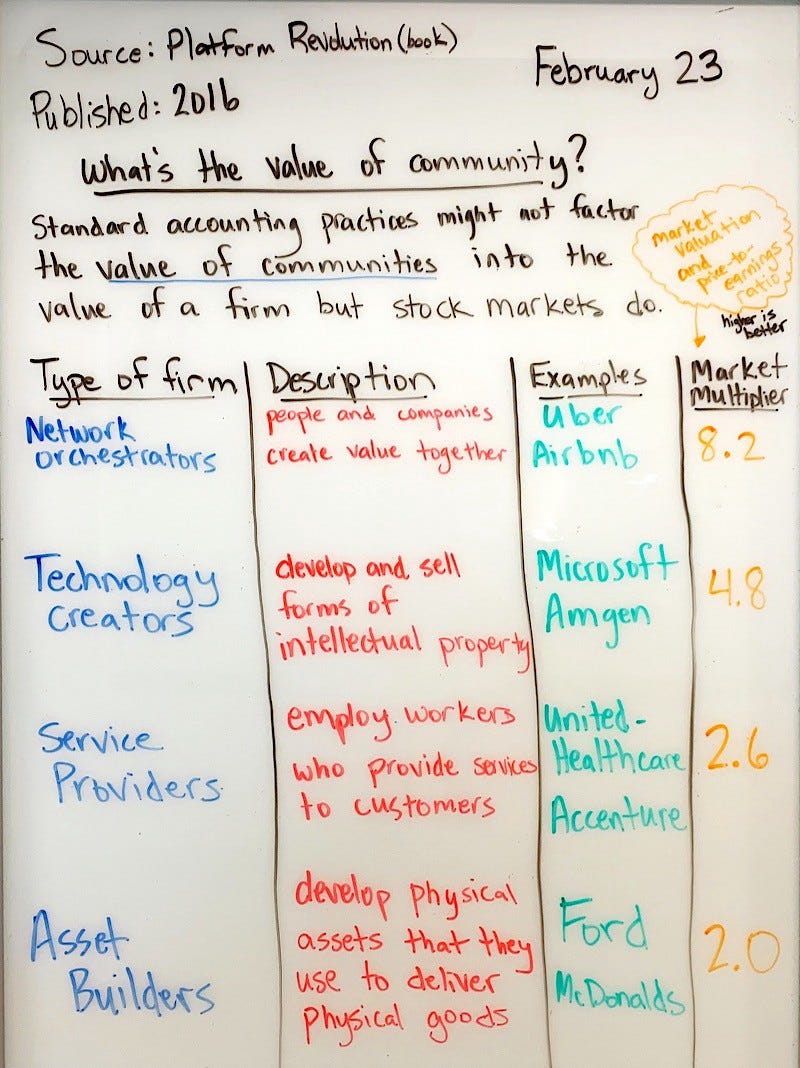 Source: Platform Revolution (book)
February 23
Published: 2016
What's the value of community?
Standard accounting practices might not factor
the value of communities into the
value of a firm but stock markets do.
market
valuation
and
price-to-
earnings
ratio
higher is
better
Type of firm
Description
Examples
Market
Multiplier
Network
orchestrators
people and companies
create value together
Uber
Airbnb
8.2
Technology
Creators
develop and sell
forms of
intellectual property
Microsoft
Amgen
4.8
Service
Providers
employ workers
who provide services
to customers
United-
Healthcare
Accenture
2.6
Asset
Builders
develop physical
assets that they
use to deliver
physical goods
Ford
McDonalds
2.0